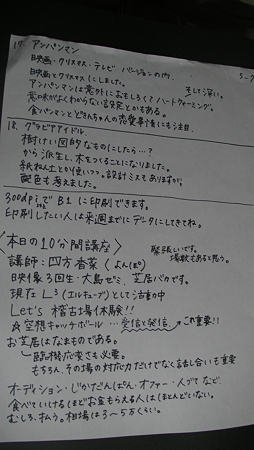 17. アンパンマン
映画・クリスマス・テレビ バージョンの内、
映画とクリスマスにしました。 そして深い。
アンパンマンは意外におもしろくてハートウォーミング。
意味がよくわからない設定とかもある。
食パンマンとどきんちゃんの恋愛事情にも注目。
5-7
18. グラビアアイドル
樹けい図的なものにしたら…?
から派生し、木をつくることになりました。
紙ねん土とか使って。設計ミスもありますが、
配色も考えました。
300dpiで B1 に印刷できます。
印刷したい人は来週までにデータにしてきてね。
〈本日の10分間講座〉
緊張しいです。
場数もあると思う。
講師:四方香菜(よんぽ)
映像3回生・大島ゼミ、芝居バカです。
現在 L³(エルキューブ)として活動中
Let's 稽古場体験!!
☆空想キャッチボール…受信と発信 これ重要!!
お芝居はなまものである。
臨機応変さも必要。
もちろん、その場の対応力だけでなく話し合いも重要
オーディション・じかだんぱん・オファー・人づてなど、
食べていけるほどお金もらえる人はほとんどいない。
むしろ、払う。相場は3~5万くらい。